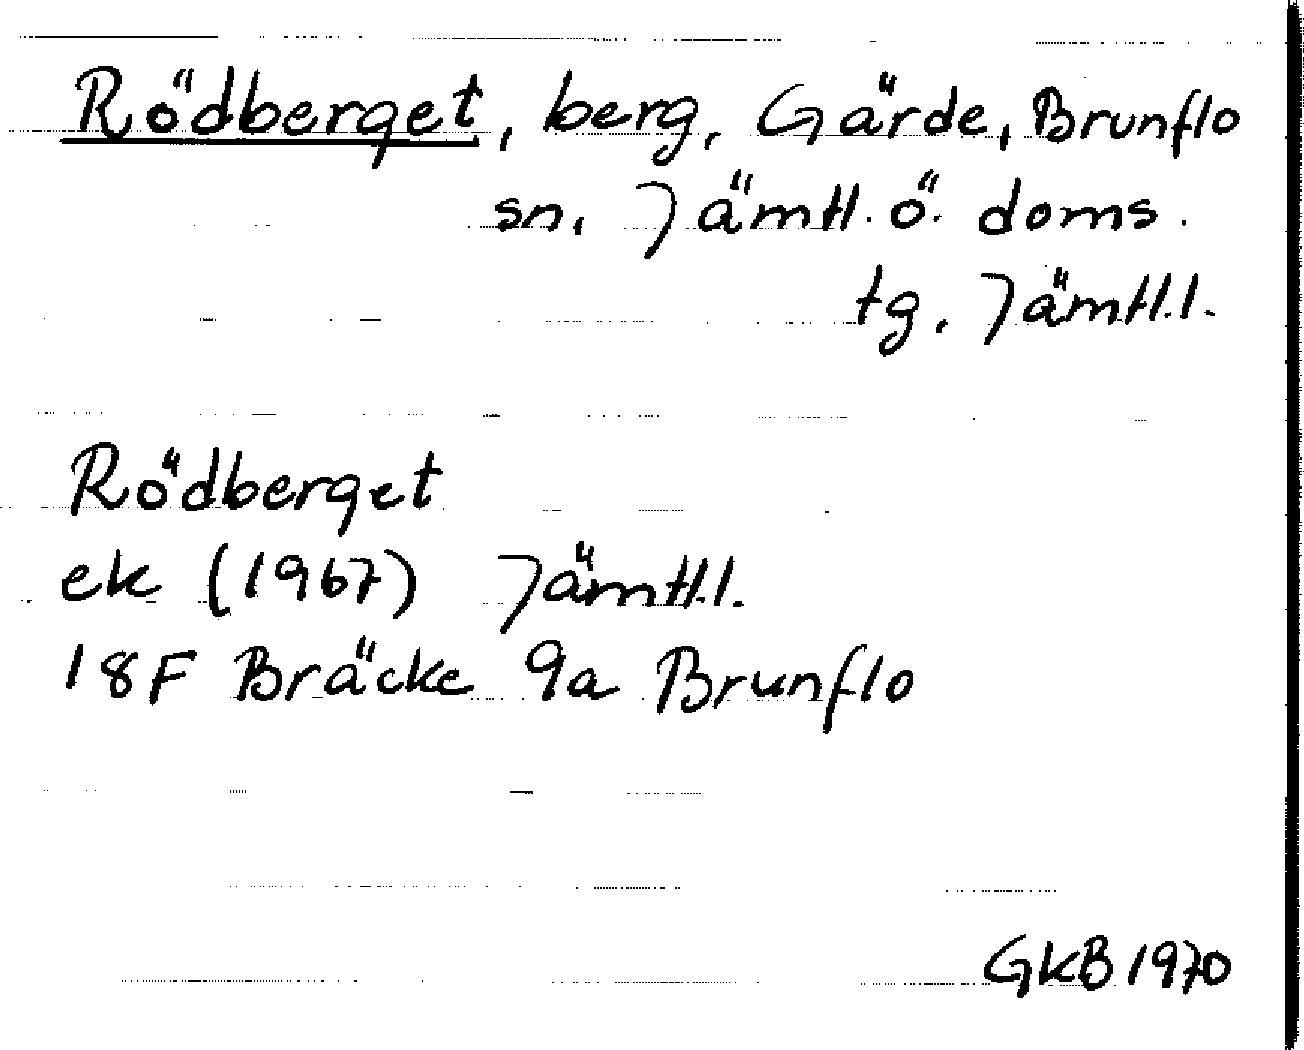 Rödberget, berg, Gärde, Brunflo
sn, Jämtl. ö. doms.
tg, Jämtl.l.
Rödberget
ek (1967) Jämtl.l.
18F Bräcke 9a Brunflo
GKB 1970